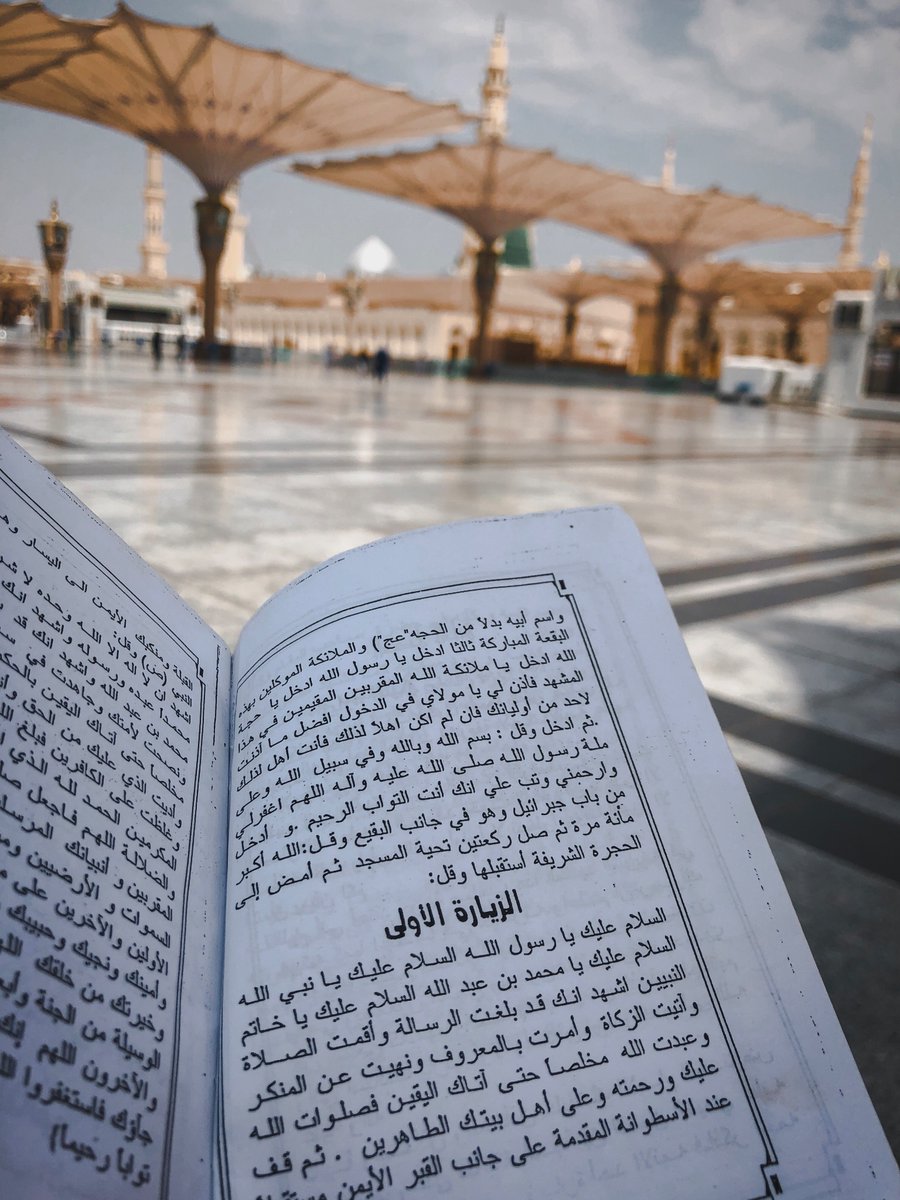 واسم أبيه بدلاً من الحجه"عج") والملائكة الموكلين بهذه
البقعة المباركة ثالثا ادخل يا رسول الله ادخل يا حجة
الله ادخل يا ملائكة الله المقربين المقيمين في هذا
المشهد فأذن لي يا مولاي في الدخول افضل ما اذنت
لاحد من أوليائك فان لم اكن اهلا لذلك فانت أهل لذلك
.ثم ادخل وقل : بسم الله وبالله وفي سبيل الله وعلى
ملة رسول الله صلى الله عليه وآله اللهم اغفرلي
وارحمني وتب علي انك أنت التواب الرحيم .و أدخل
من باب جبرائيل وهو في جانب البقيع وقل:الله أكبر
مأئة مرة ثم صل ركعتين تحية المسجد ثم أمض إلى
الحجرة الشريفة أستقبلها وقل:
الزيارة الأولى
السلام عليك يا رسول الله السلام عليك يا نبي الله
السلام عليك يا محمد بن عبد الله السلام عليك يا خاتم
النبيين اشهد انك قد بلغت الرسالة وأقمت الصلاة
وآتيت الزكاة وامرت بالمعروف ونهيت عن المنكر
وعبدت الله مخلصاً حتى آتاك اليقين فصلوات الله
عليك ورحمته وعلى أهل بيتك الطاهرين . ثم قف
عند الأسطوانة المقدمة على جانب القبر الأيمن
القبلة ومنكبك الأيمن الى اليسار
النبي (ص) وقل: اشهد ان لا اله الا الله وحده لا
محمداً عبده ورسوله واشهد انك
محمد بن عبد الله واشهد انك قد
ونصحت لأمتك وجاهدت في
مخلصاً حتى أتاك اليقين
وأديت الذي عليك من الحق
وغلظت على الكافرين فبلغ
المكرمين الحمد لله الذي
والضلالة اللهم فاجعل
المقربين و أنبيائك
السموات و الأرضيين
الأولين والآخرين على
وأمينك ونجيك وحبيبك
وخيرتك من خلقك
الوسيلة من الجنة
والآخرون اللهم إنك
جاؤك فاستغفروا
توابا رحيما)